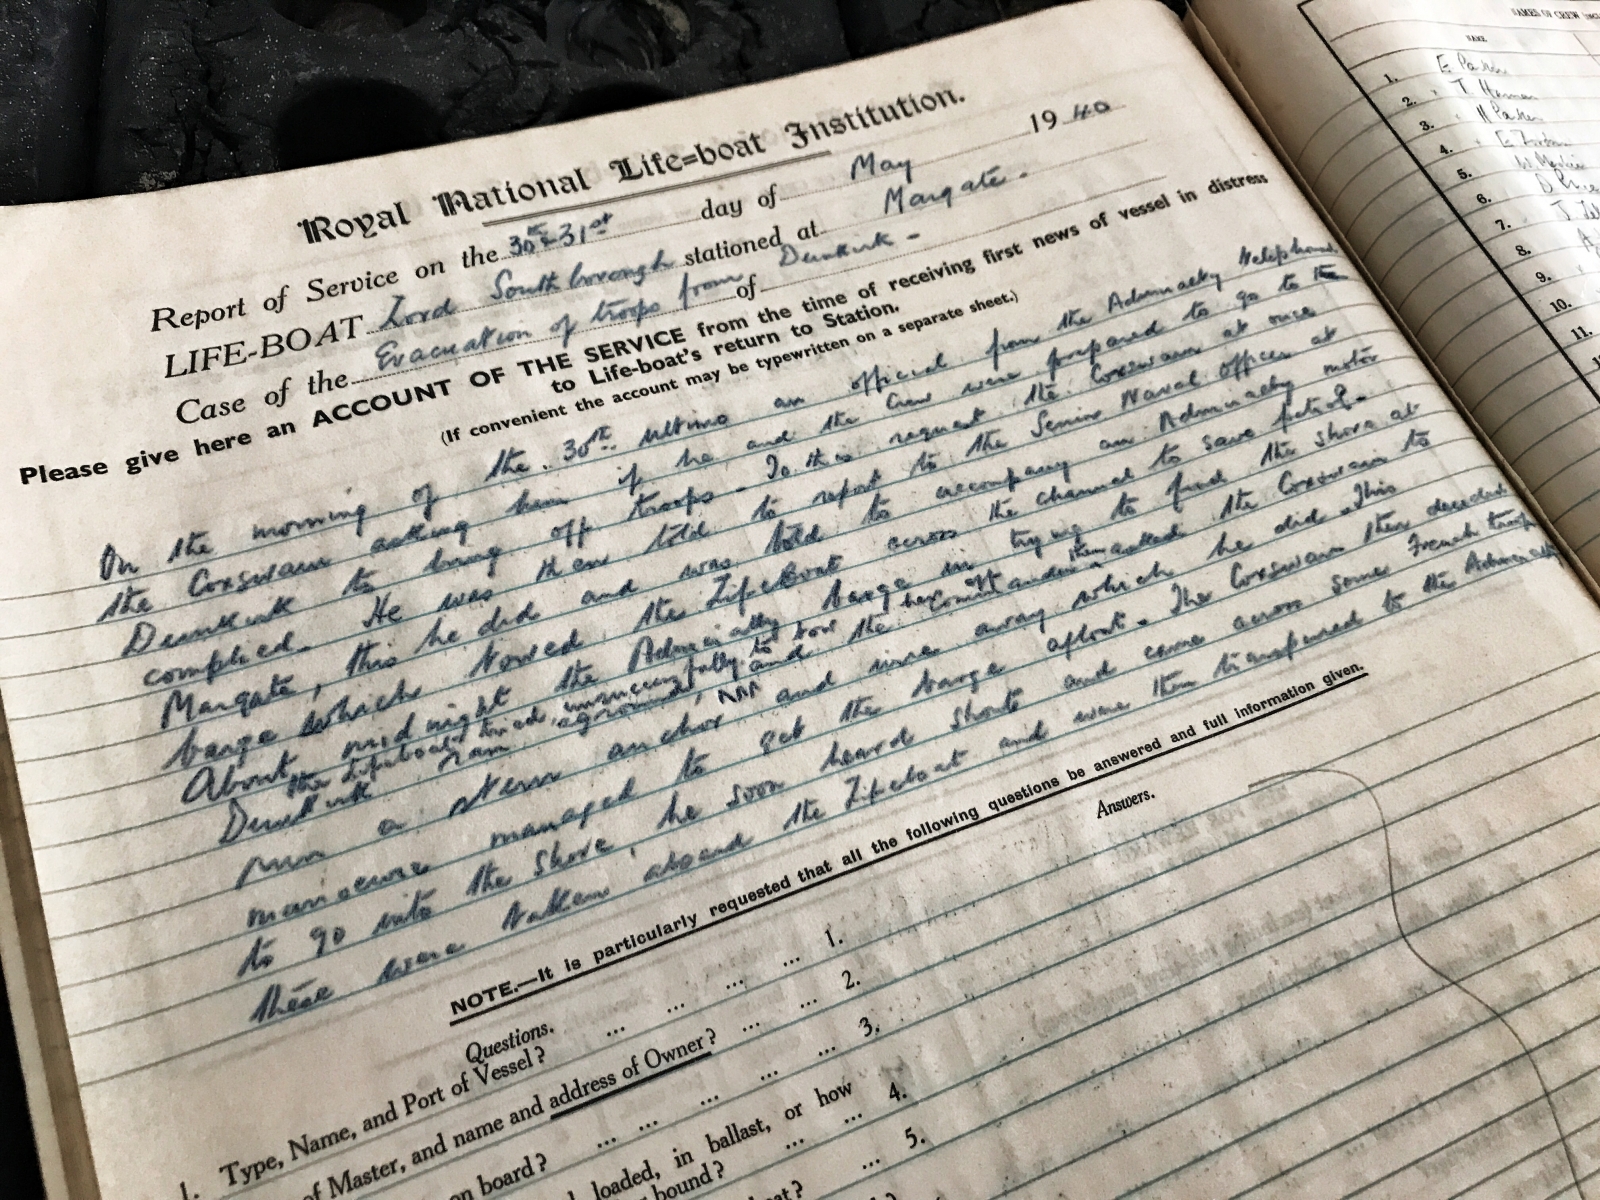 Royal National Life=boat Institution.
Report of Service on the 30th & 31st day of May 1940
LIFE-BOAT Lord Southborough stationed at Margate.
Case of the Evacuation of troops from of Dunkirk -
Please give here an ACCOUNT OF THE SERVICE from the time of receiving first news of vessel in distress
to Life-boat's return to Station.
(If convenient the account may be typewritten on a separate sheet.)
On the morning of the 30th ultimo an official from the Admiralty telephoned
the Coxswain asking him if he and the Crew were prepared to go to
Dunkirk to bring off troops - To this request the Coxswain at once
complied. He was then told to report to the Senior Naval Officer at
Margate, this he did and was told to accompany an Admiralty motor
barge which towed the LifeBoat across the channel to save petrol.
About midnight the Admiralty barge in trying to find the shore at
Dunkirk ran aground, and the then asked the Coxswain to
the Lifeboat tried, unsuccessfully to tow her off and
run a stern anchor and wire away which he did. This
manoeuvre managed to get the barge afloat. The Coxswain then decided
to go into the shore, he soon heard shouts and came across some French troops
these were taken aboard the Lifeboat and were then transferred to the
NOTE.—It is particularly requested that all the following questions be answered and full information given.
Questions. Answers.
1. Type, Name, and Port of Vessel? ... ... ... ... 1.
of Master, and name and address of Owner? ... ... 2.
on board? ... ... ... ... ... 3.
loaded, in ballast, or how
bound? ... ... 4.
... 5.
NAMES OF CREW
NAME
1. E. Parker
2. T. Harman
3. H Parker
4.
5.
6. D. Price
7.
8.
9.
10.
11.